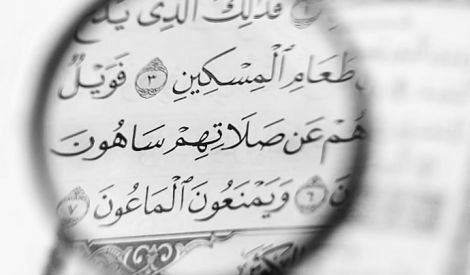 فَذَٰلِكَ ٱلَّذِى يَدُعُّ
طَعَامِ ٱلْمِسْكِينِ ٣ فَوَيْلٌ
هُمْ عَن صَلَاتِهِمْ سَاهُونَ
٦ وَيَمْنَعُونَ ٱلْمَاعُونَ ٧